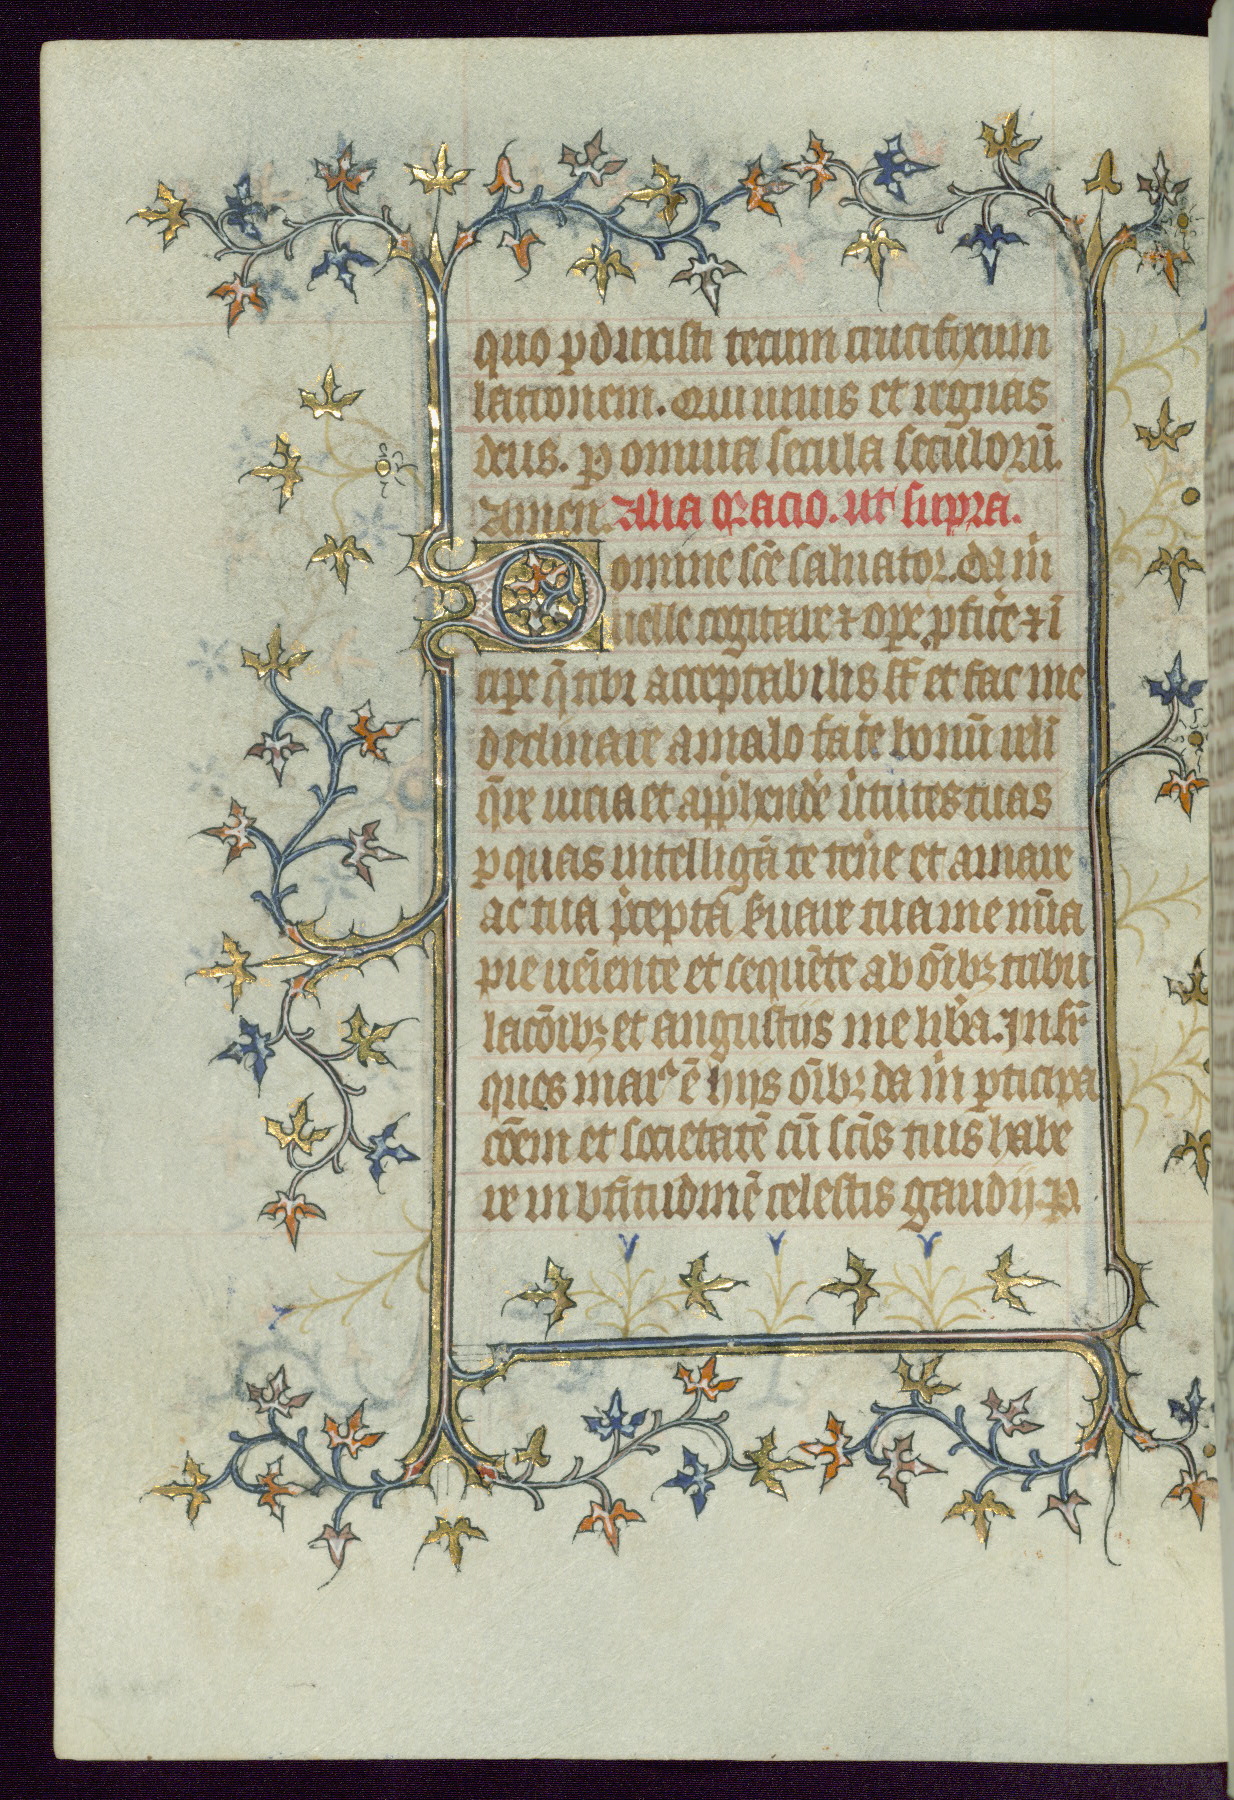 quo ꝑduxisti tecum crucifixum
latronem. Qui uiuis et regnas
deus. ꝑ omnia secula seculorū.
Amen. Alia oracio. ut supra.
Domine scē saluator. da m̄
uelle cogitare ⁊ oꝑe ꝑficē ⁊ ī
ciꝑe q̄ tibi acceptabilis et fac me
declinare a malo facē bonū reli
q̄re uicia et app̄hendē ùtutes tuas
ꝑ quas intelligā te tenē et amare
ac tua p̄cepta s̄uare tua me mīa
p̄e ueīente et sequēte ab oīb; tribu
lacōib; et angustijs me lib̄a. In
quos hijs oīb; da m̄ ꝑticipa
cōem et societatē cū scīs tuis habe
re in btitudinē celestis gaudij. P.